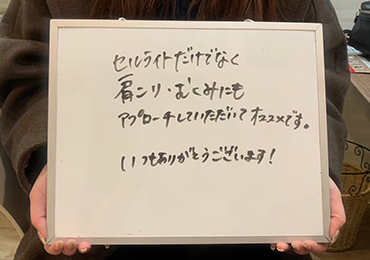 セルライトだけでなく
肩コリ・むくみにも
アプローチしていただいてオススメです。
いつもありがとうございます!